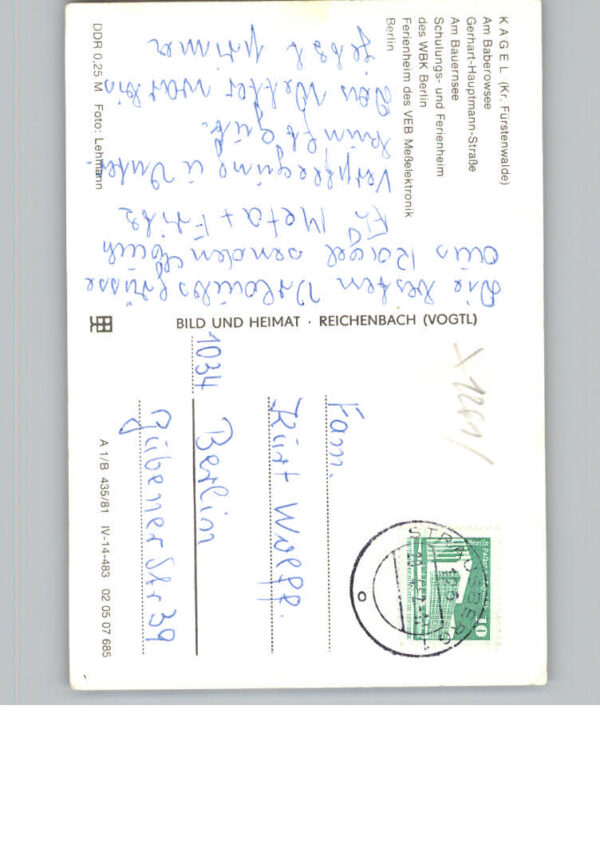 KAGEL (Kr. Fürstenwalde)
Am Baberowsee
Gerhart-Hauptmann-Straße
Am Bauernsee
Schulungs- und Ferienheim
des WBK Berlin
Ferienheim des VEB Meßelektronik
Berlin
DDR 0,25 M Foto: Lehmann
Die besten Urlaubsgrüsse
aus Kagel senden Euch
Meta + Fritz
Verpflegung u Unter
kunft gut.
Das Wetter war bis
jetzt prima
BILD UND HEIMAT · REICHENBACH (VOGTL)
Fam.
Kurt
Berlin
1034
Str 39
A 1/B 435/81 IV-14-483 02 05 07 685
STRAUSBERG
10